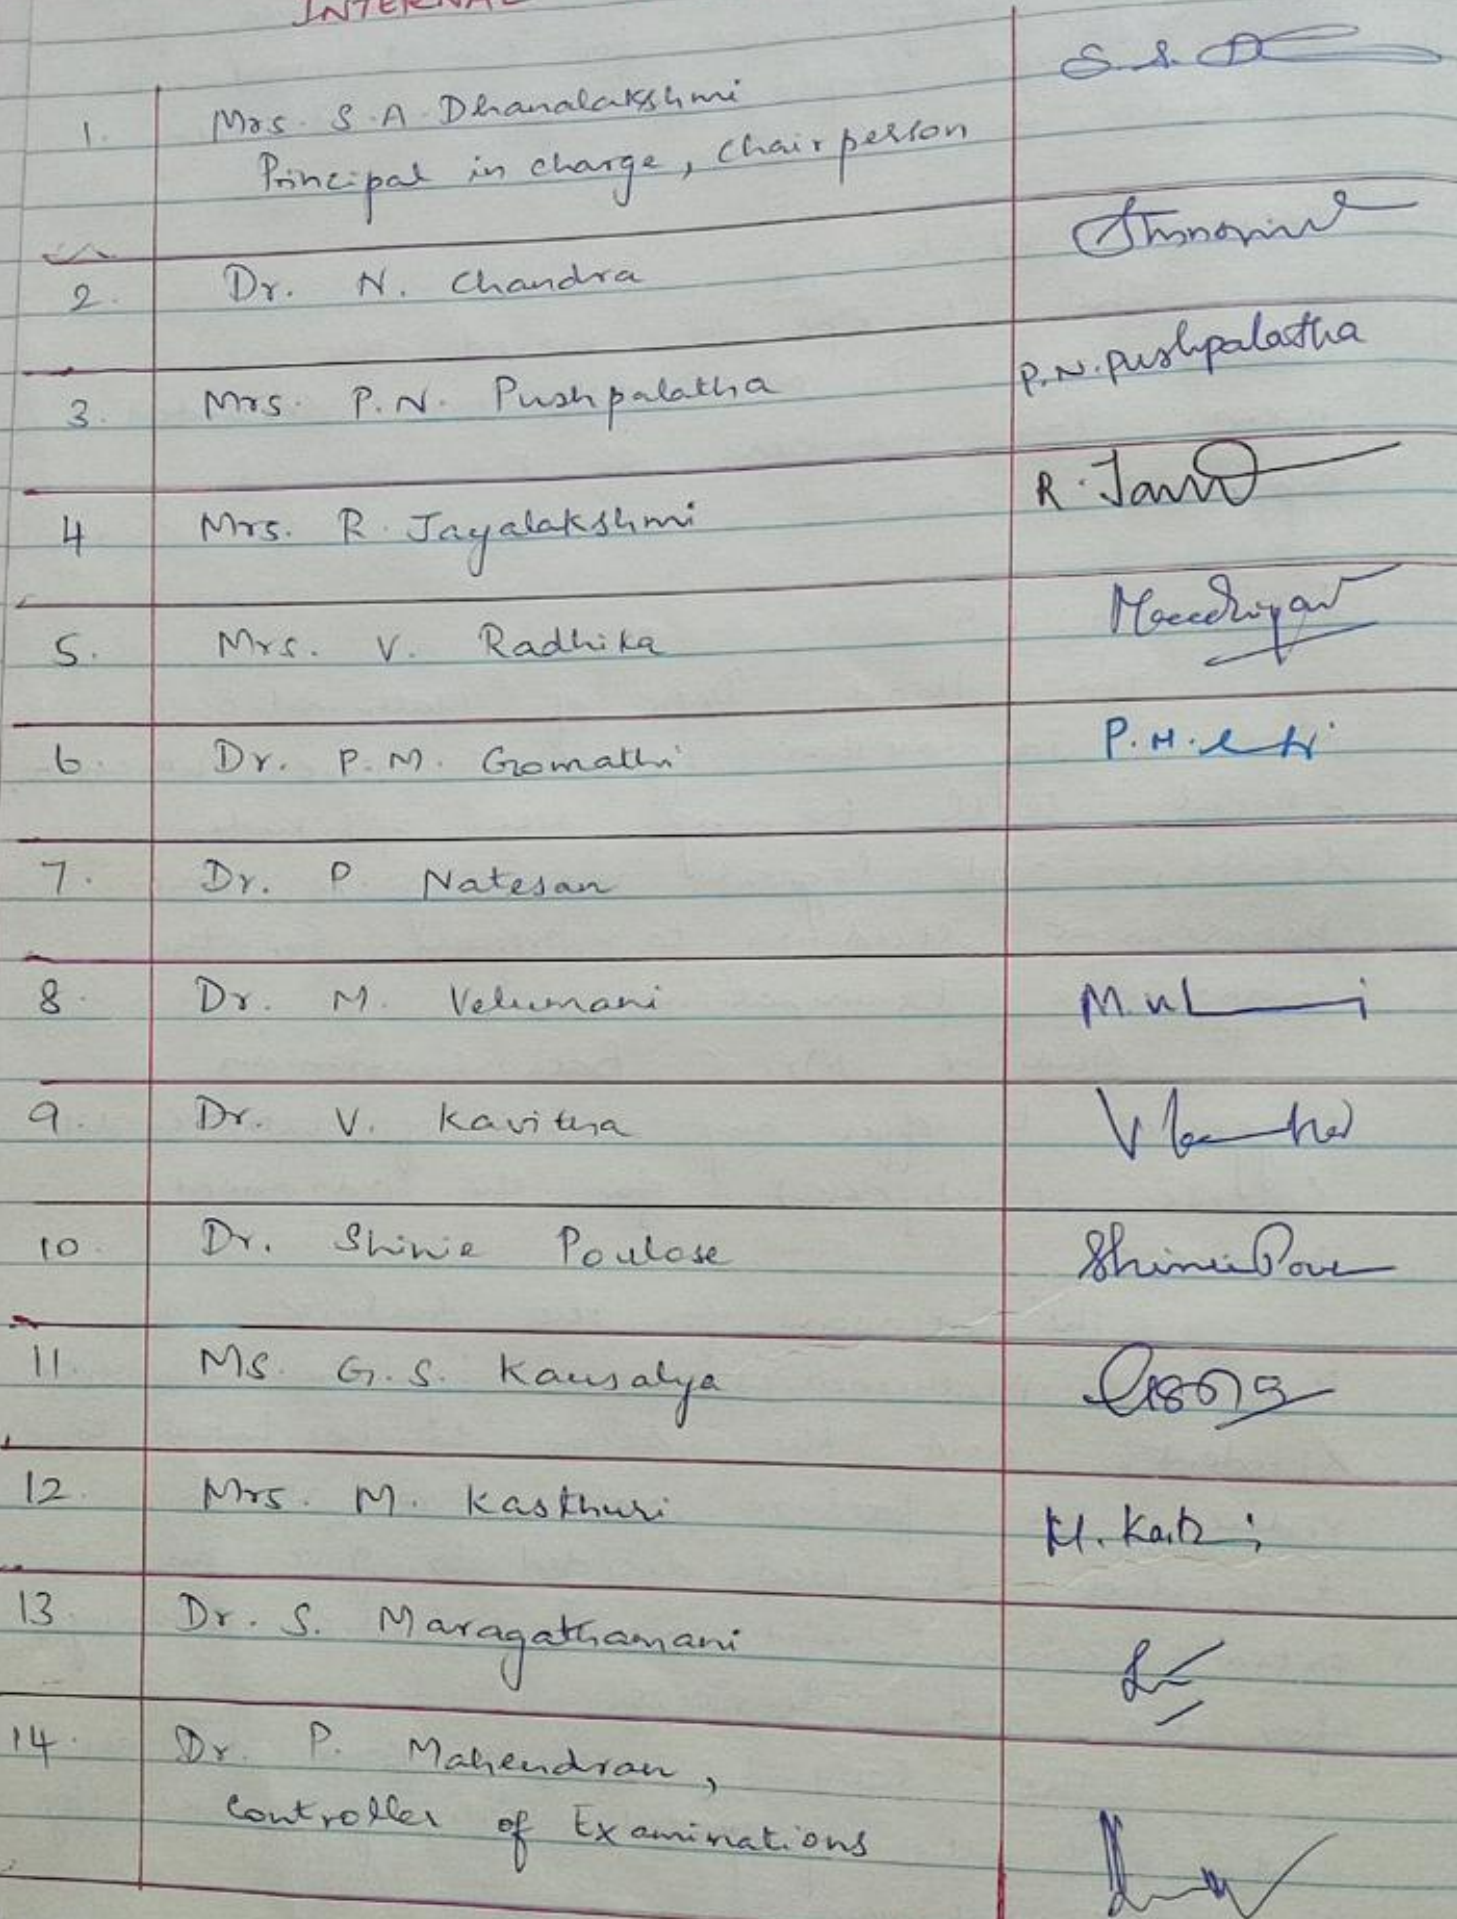 INTERNAL
1. Mrs. S.A. Dhanalakshmi
Principal in charge, Chairperson
2. Dr. N. Chandra
3. Mrs. P.N. Pushpalatha P.N. Pushpalatha
4 Mrs. R. Jayalakshmi R.
5. Mrs. V. Radhika
6. Dr. P.M. Gomathi P.M.
7. Dr. P. Natesan
8. Dr. M. Velumani M.
9. Dr. V. Kavitha V
10. Dr. Shinie Poulose
11. Ms. G.S. Kausalya
12. Mrs. M. Kasthuri M.
13. Dr. S. Maragathamani
14. Dr. P. Mahendran,
Controller of Examinations